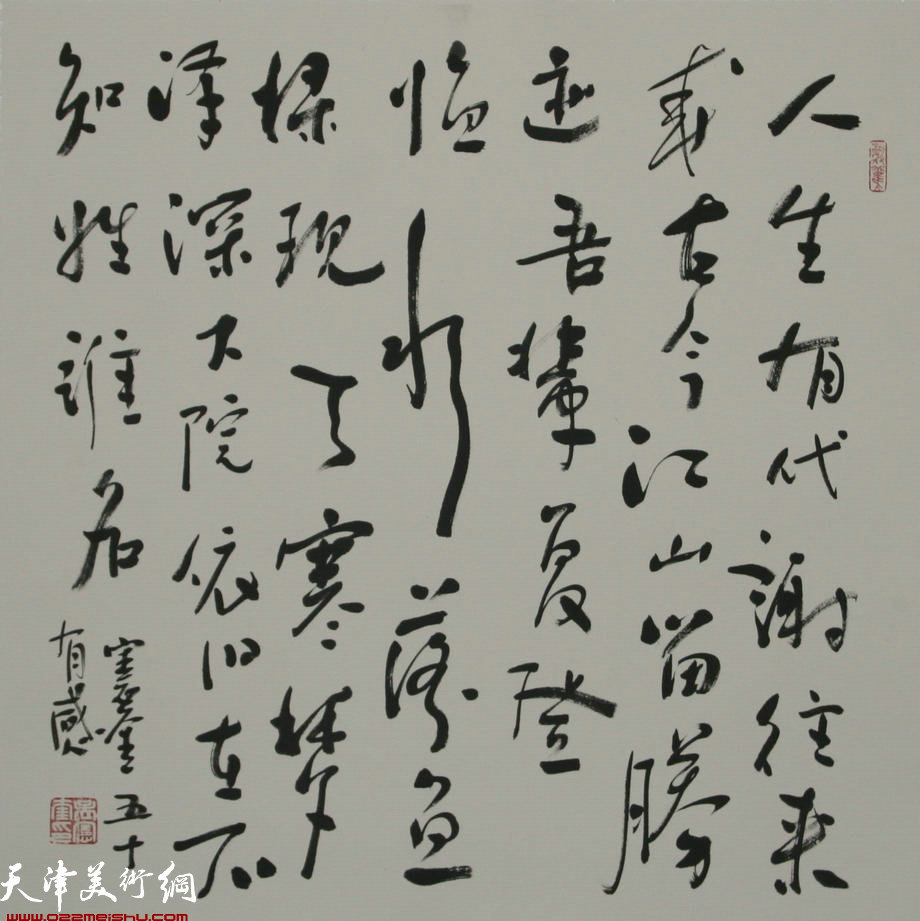 人生有代謝往来
成古今江山留勝
迹吾輩复登
臨水落魚
梁現天寒梦
澤深大院依旧在不
知姓誰名
五十
有感
天津美術網
www.022meishu.com